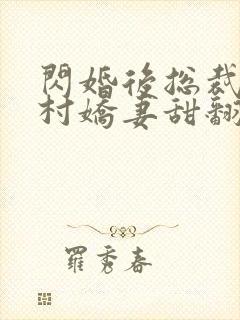 閃婚後總裁
村嬌妻甜翻
羅秀春